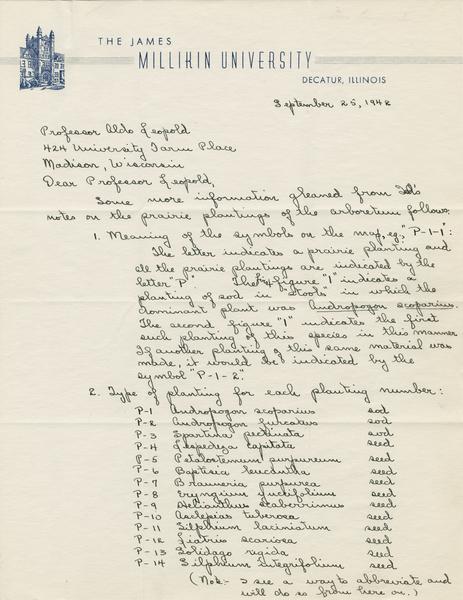 THE JAMES
MILLIKIN UNIVERSITY
DECATUR, ILLINOIS
September 25, 1942
Professor Aldo Leopold
424 University Farm Place
Madison, Wisconsin
Dear Professor Leopold,
Some more information gleaned from
notes on the prairie plantings of the arboretum follows.
1. Meaning of the symbols on the map, eg. "P-1-1":
The letter indicates a prairie planting and
all the prairie plantings are indicated by the
letter "P". The figure "1" indicates a
planting of sod in "stools" in which the
dominant plant was Andropogon scoparius.
The second figure "1" indicates the first
such planting of this species in this manner.
If another planting of this same material was
made, it would be indicated by the
symbol "P-1-2".
2. Type of planting for each planting number:
P-1 Andropogon scoparius sod
P-2 Andropogon furcatus sod
P-3 Spartina pectinata sod
P-4 Lespedeza capitata seed
P-5 Petalostemum purpureum seed
P-6 Baptisia leucantha seed
P-7 Brauneria purpurea seed
P-8 Eryngium yuccifolium seed
P-9 Helianthus scaberrimus seed
P-10 Asclepias tuberosa seed
P-11 Silphium laciniatum seed
P-12 Liatris scariosa seed
P-13 Solidago rigida seed
P-14 Silphium integrifolium seed
(Note:- I see a way to abbreviate and
will do so from here on.)